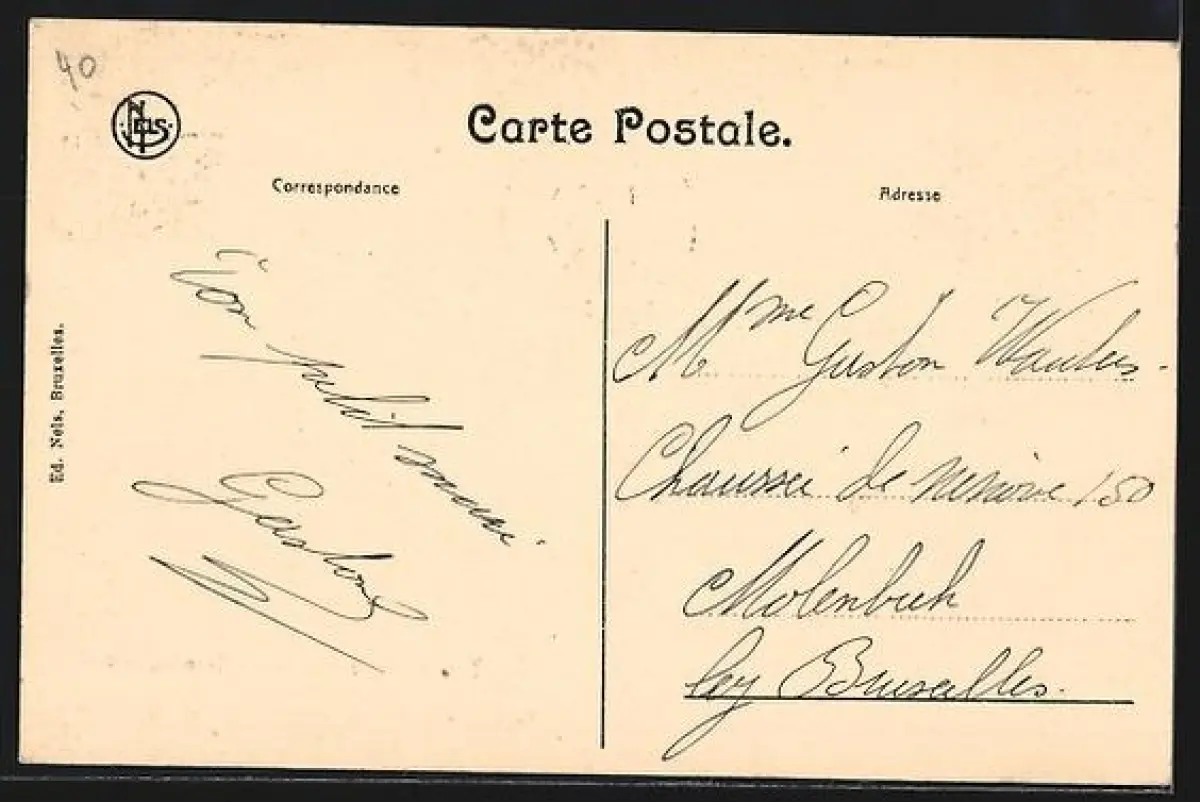 40
Nels
Carte Postale.
Correspondance
Adresse
Ed. Nels, Bruxelles.
Ton petit mari
Gaston
Mme Gaston Wauters.
Chaussée de Ninove 150
Molenbeek
lez Bruxelles.